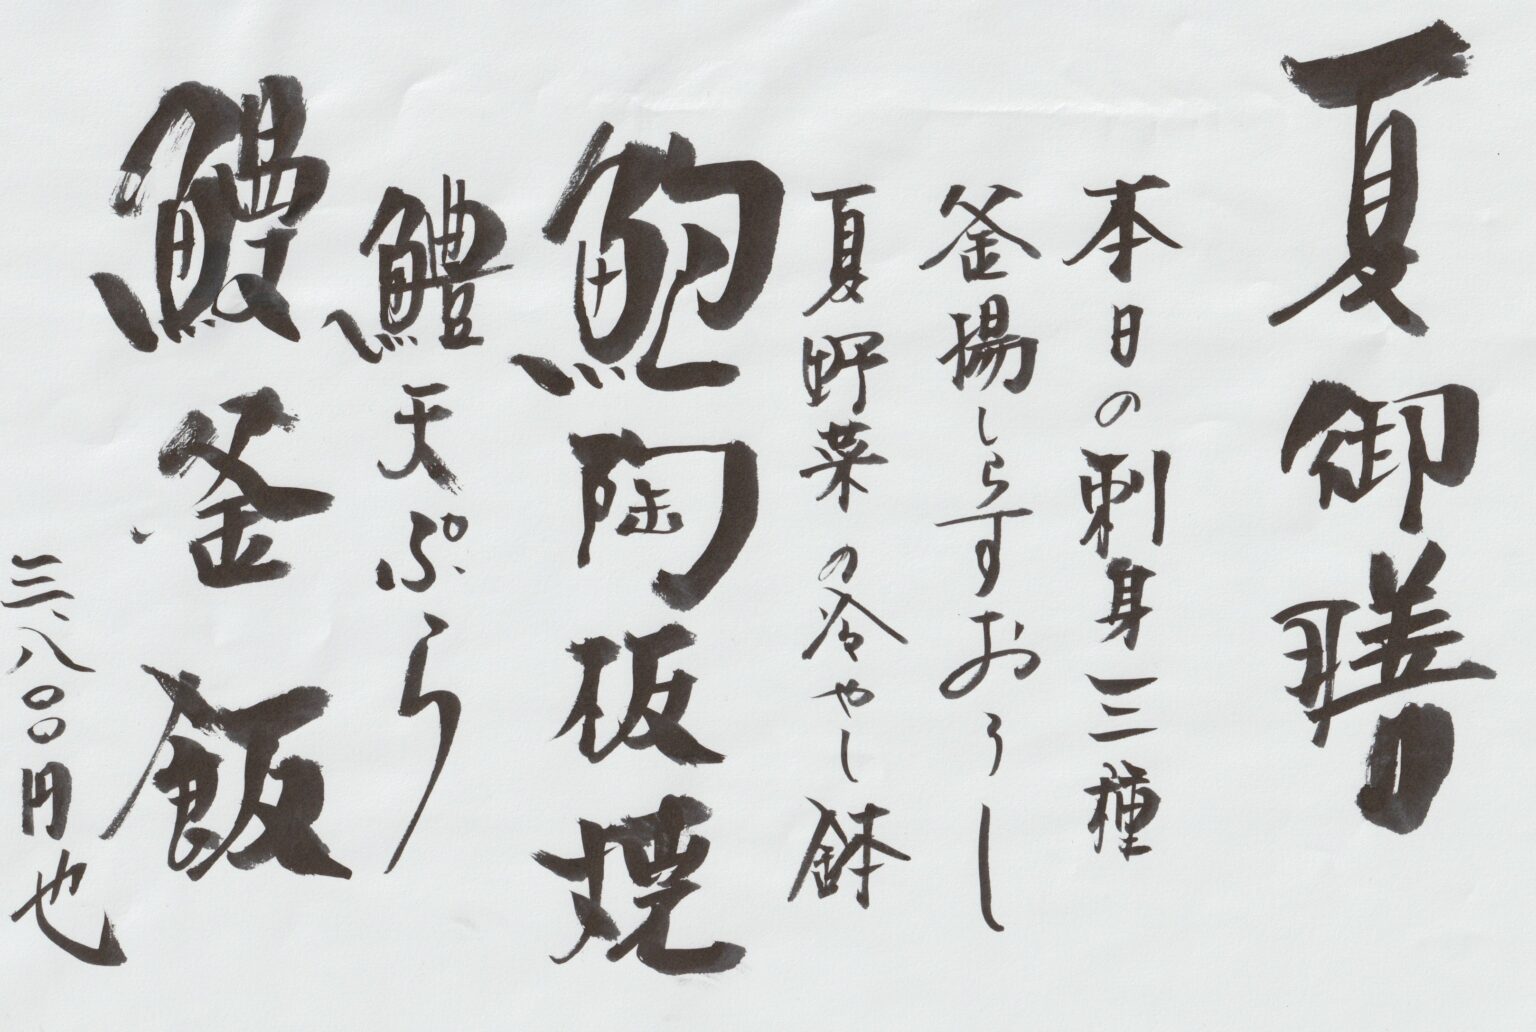 夏御膳
本日の刺身三種
釜揚しらすおろし
夏野菜の冷やし鉢
鮑陶板焼
鱧天ぷら
鰻釜飯
三、八〇〇円也